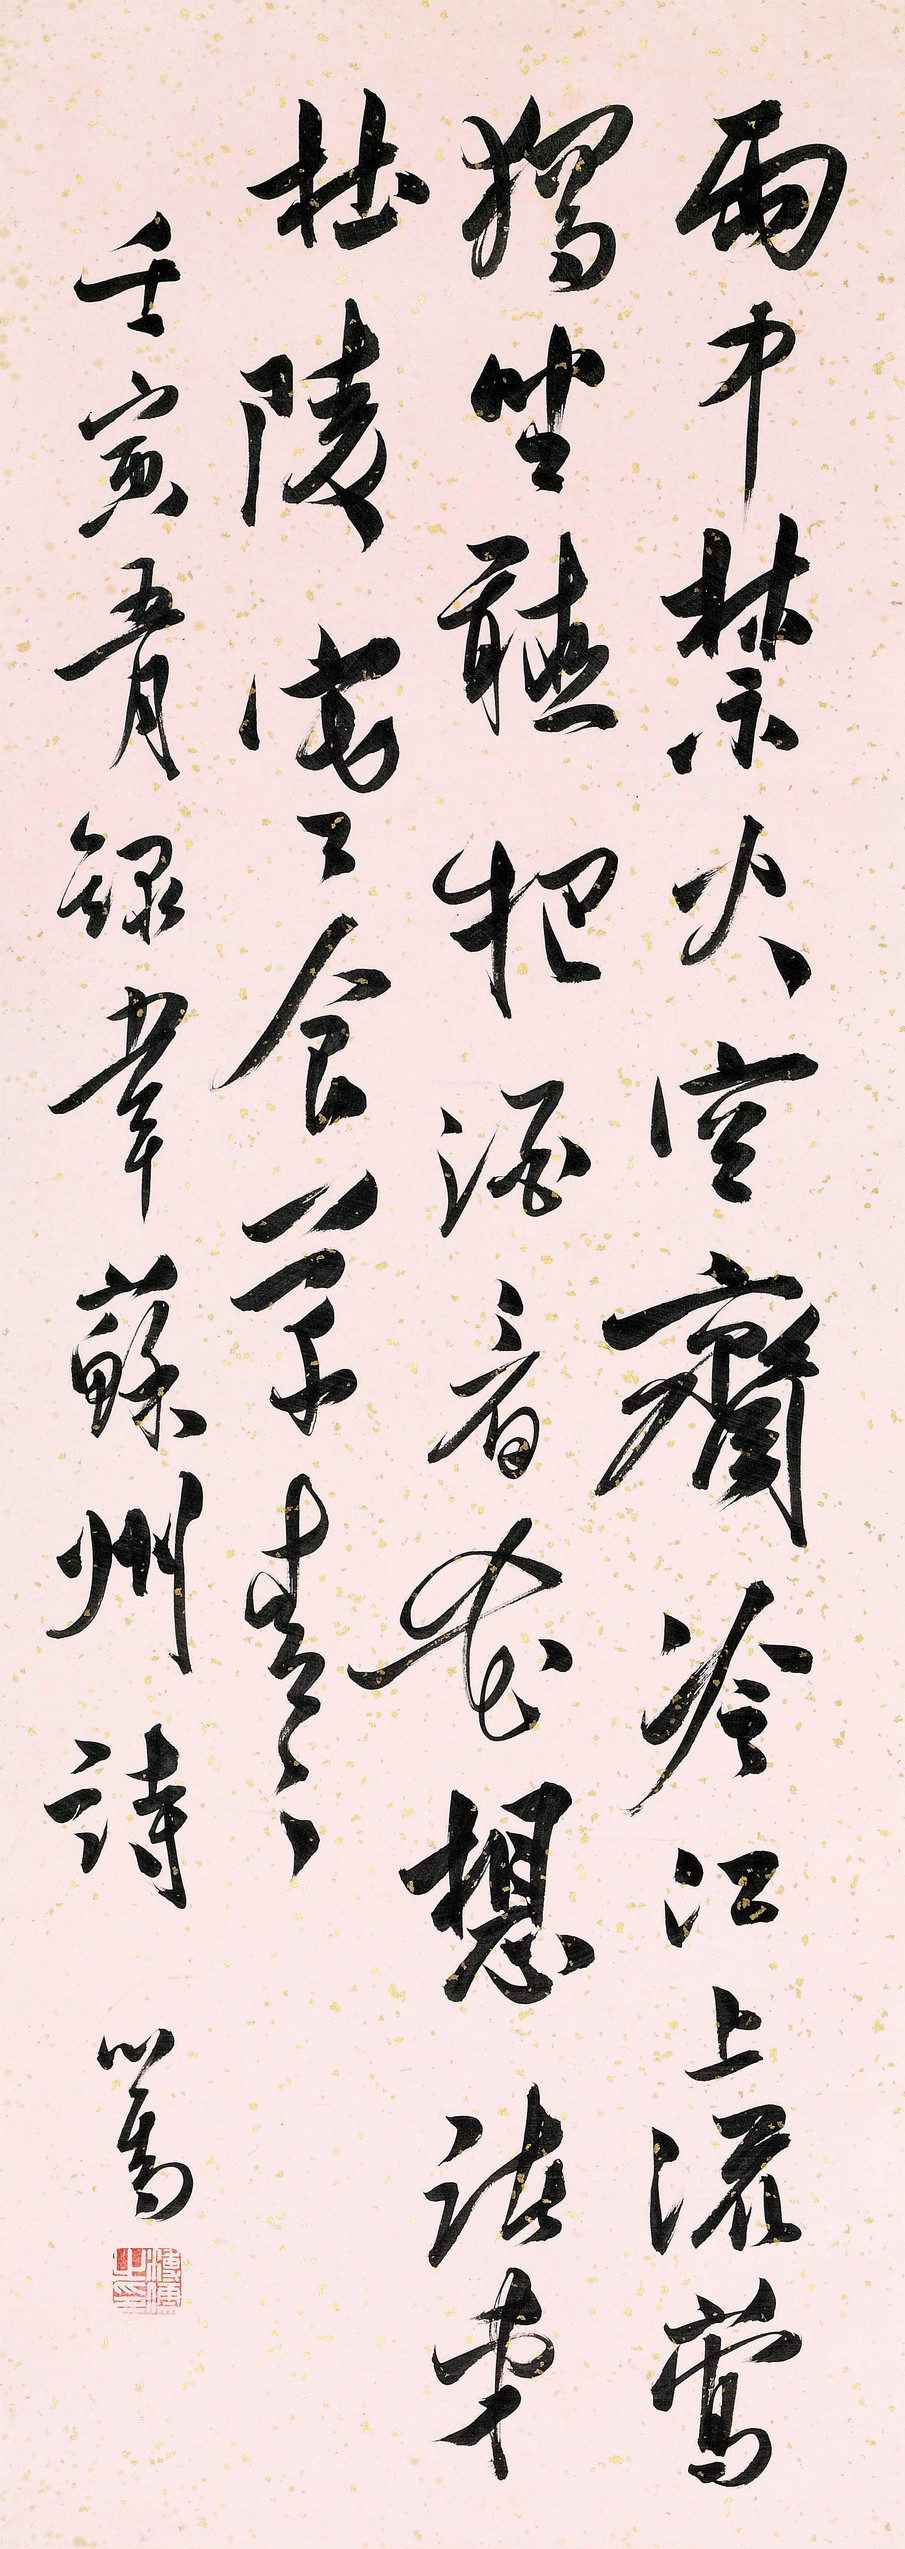 雨中禁火空齋冷江上流鶯
獨坐聽把酒看花想諸弟
杜陵寒食草青青
壬寅五月錄韋蘇州詩
心畬
溥儒之印